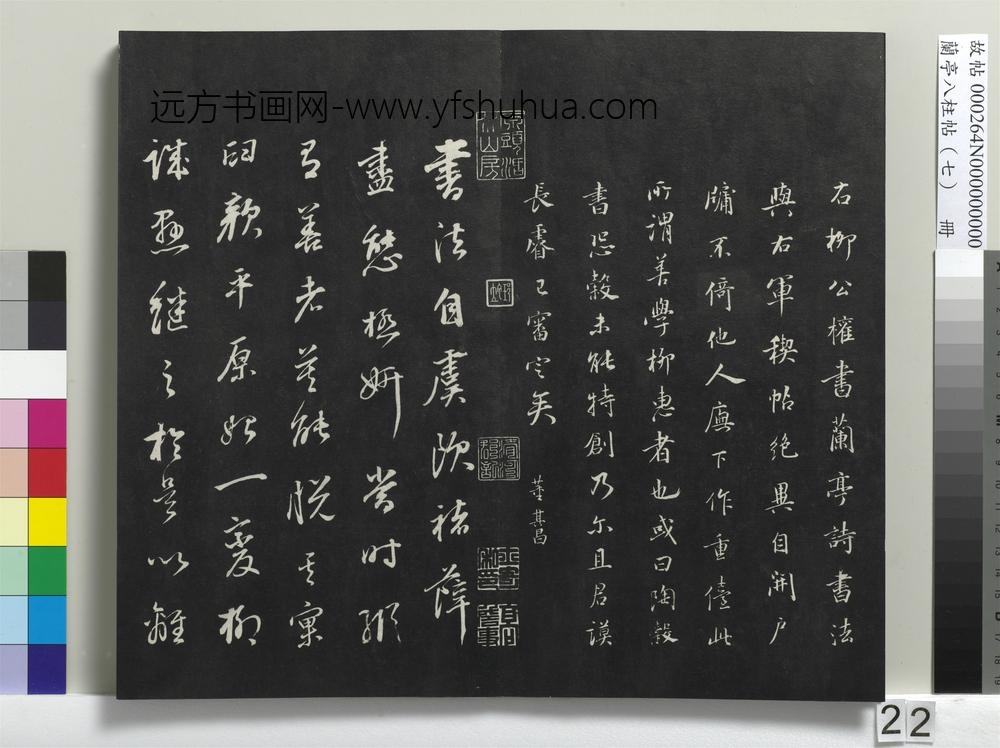 远方书画网-www.yfshuhua.com
故帖 000264N000000000
蘭亭八柱帖（七） 冊
右柳公權書蘭亭詩書法
與右軍稧帖絶異自開戶
牖不倚他人廡下作重儓此
所謂善學柳惠者也或曰陶穀
書恐穀未能特創乃尔且君謨
長睿已審定矣
董其昌
書法自虞歐褚薛
盡態極妍當时縱
有善者莫能脱其窠
臼顏平原始一變柳
誠懸繼之於是以離
22